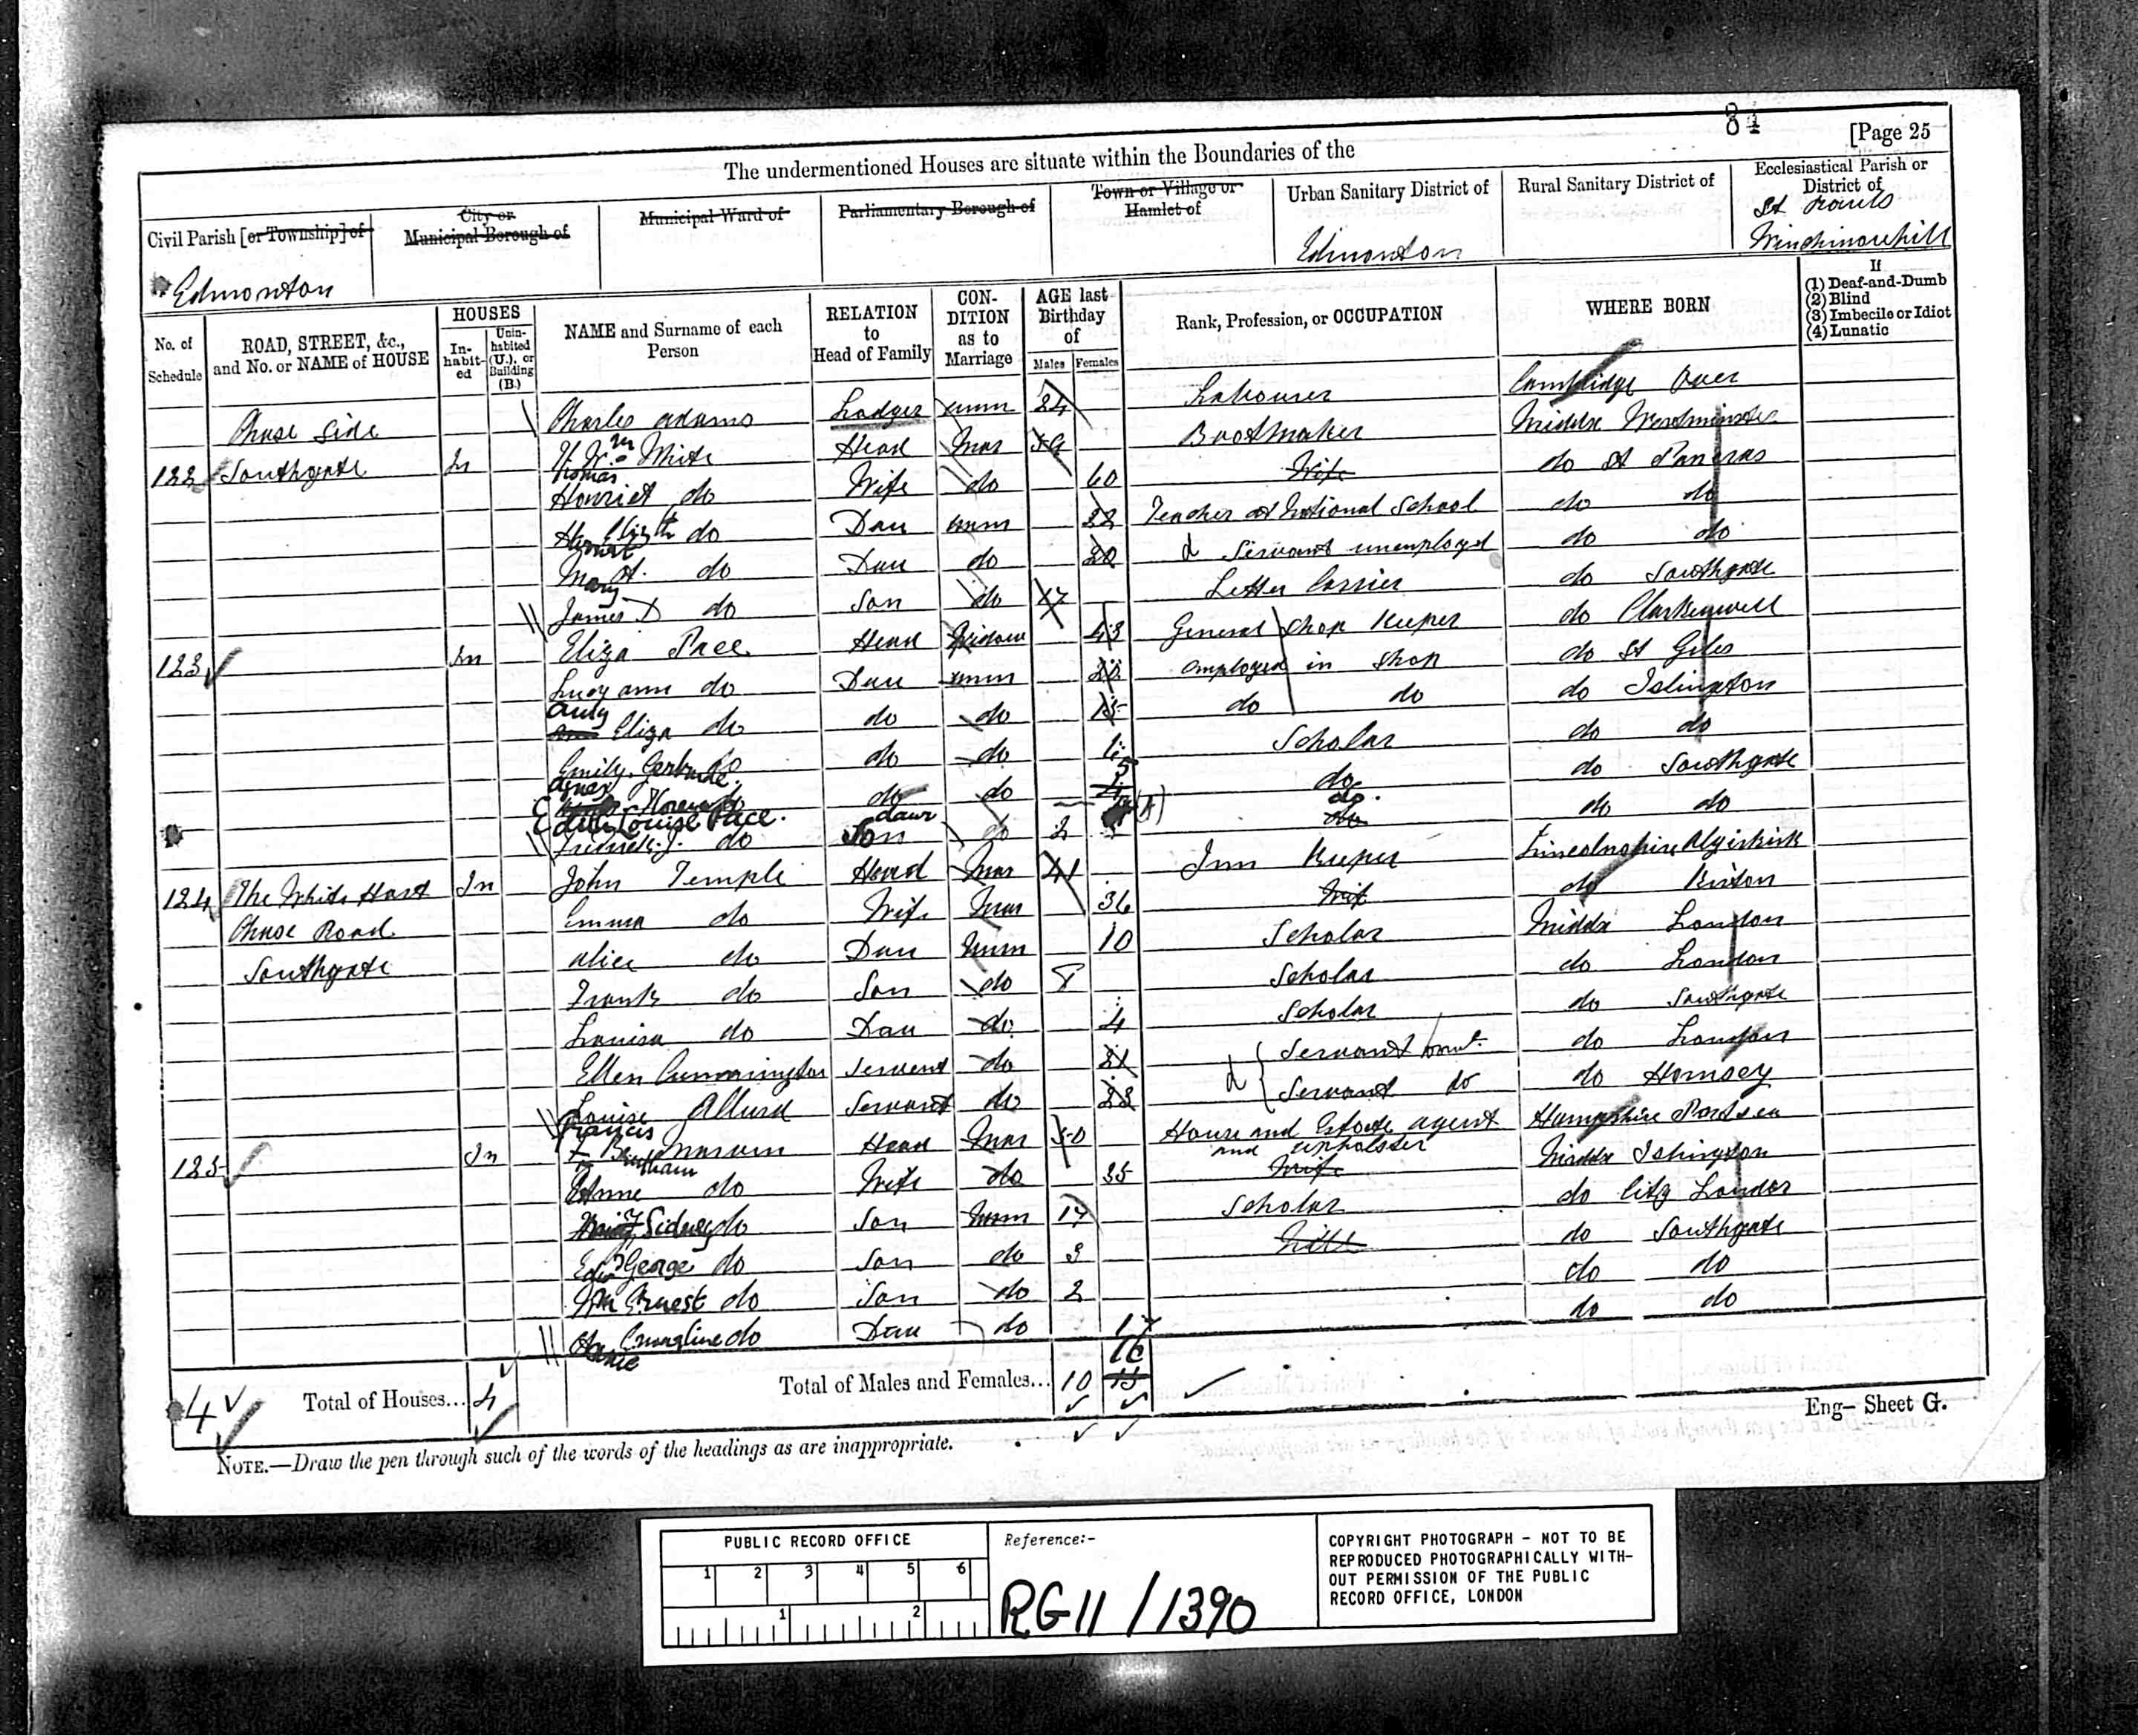 84
[Page 25
The undermentioned Houses are situate within the Boundaries of the
Civil Parish [or Township] of
City or Municipal Borough of
Municipal Ward of
Parliamentary Borough of
Town or Village or Hamlet of
Urban Sanitary District of
Rural Sanitary District of
Ecclesiastical Parish or District of
Edmonton
Edmonton
St Pauls
Winchmorehill
No. of Schedule
ROAD, STREET, &c., and No. or NAME of HOUSE
HOUSES
In-habit-ed
Unin-habited (U.), or Building (B.)
NAME and Surname of each Person
RELATION to Head of Family
CON-DITION as to Marriage
AGE last Birthday of
Males
Females
Rank, Profession, or OCCUPATION
WHERE BORN
If
(1) Deaf-and-Dumb
(2) Blind
(3) Imbecile or Idiot
(4) Lunatic
Chase Side Charles Adams Lodger unm 24 Labourer Cambridge Over
122 Southgate In Thomas Wm White Head Mar Bootmaker Middx Westminster
Harriet do Wife do 60 Wife do St Pancras
Elizth do Dau unm 22 Teacher at National School do do
Mary H. do Dau do 20 d Servant unemployed do do
James D do Son do 17 Letter Carrier do Southgate
123 In Eliza Pace Head Widow 43 General Shop Keeper do Clarkenwell
Lucy ann do Dau unm 22 employed in Shop do St Giles
Amy Eliza do do do 15 do do do Islington
Emily Gertrude do do do Scholar do do
Agnes do do 5 do do Southgate
Edith Louise Pace. daur do. do do
Fredrick. J. do Son do 2
124 The White Hart In John Temple Head Mar 41 Inn Keeper Lincolnshire Algirkirk
Chase Road Emma do Wife Mar 36 Wife do Kirton
Southgate Alice do Dau Unm 10 Scholar Middx London
Frank do Son do 8 Scholar do London
Louisa do Dau do 4 Scholar do Southgate
Ellen Cunnington Servant do 21 d Servant do London
Louise Allurd Servant do 22 Servant do do Hornsey
125 In Francis Bentham Head Mar 50 House and Estate agent and upholster Hampshire Portsea
Anne do Wife do 35 Wife Middx Islington
Sidney do Son Unm 17 Scholar do City London
Edw George do Son do 3 do Southgate
Wm Ernest do Son do 2 do do
Emmeline do Dau do do do
17
16
15
4 Total of Houses... 4
Total of Males and Females... 10
Eng– Sheet G.
NOTE.—Draw the pen through such of the words of the headings as are inappropriate.
PUBLIC RECORD OFFICE
1 2 3 4 5 6
1 2
Reference:-
RG11/1390
COPYRIGHT PHOTOGRAPH – NOT TO BE
REPRODUCED PHOTOGRAPHICALLY WITH-
OUT PERMISSION OF THE PUBLIC
RECORD OFFICE, LONDON